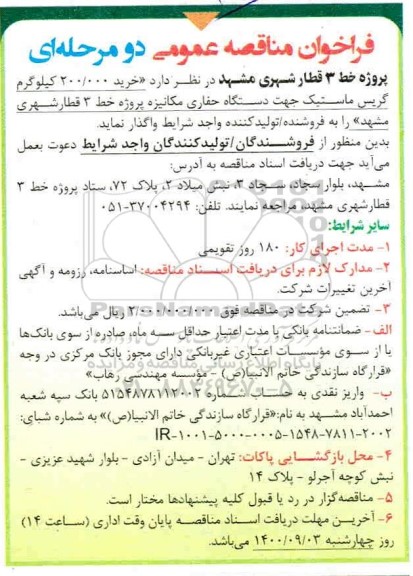 فراخوان مناقصه عمومی دو مرحله‌ای
پروژه خط ۳ قطار شهری مشهد در نظر دارد «خرید ۲۰۰/۰۰۰ کیلوگرم
گریس ماستیک جهت دستگاه حفاری مکانیزه پروژه خط ۳ قطارشهری
مشهد» را به فروشنده/تولیدکننده واجد شرایط واگذار نماید.
بدین منظور از فروشندگان/تولیدکنندگان واجد شرایط دعوت بعمل
می‌آید جهت دریافت اسناد مناقصه به آدرس:
مشهد، بلوار سجاد، سجاد ۳، نبش میلاد ۲، پلاک ۷۲، ستاد پروژه خط ۳
قطارشهری مشهد، مراجعه نمایند. تلفن: ۳۷۰۰۴۲۹۴-۰۵۱
سایر شرایط:
۱- مدت اجرای کار: ۱۸۰ روز تقویمی
۲- مدارک لازم برای دریافت اسناد مناقصه: اساسنامه، رزومه و آگهی
آخرین تغییرات شرکت.
۳- تضمین شرکت در مناقصه فوق ۲/۰۰۰/۰۰۰/۰۰۰ ریال می‌باشد.
الف - ضمانتنامه بانکی با مدت اعتبار حداقل سه ماه، صادره از سوی بانک‌ها
یا از سوی مؤسسات اعتباری غیربانکی دارای مجوز بانک مرکزی در وجه
«قرارگاه سازندگی خاتم الانبیا(ص) - مؤسسه مهندسی رهاب»
ب- واریز نقدی به حساب شماره ۵۱۵۴۸۷۸۱۱۲۰۰۲ بانک سپه شعبه
احمدآباد مشهد به نام:«قرارگاه سازندگی خاتم الانبیا(ص)» به شماره شبای:
IR-۱۰۰۱-۵۰۰۰-۰۰۰۵-۱۵۴۸-۷۸۱۱-۲۰۰۲
۴- محل بازگشایی پاکات: تهران - میدان آزادی - بلوار شهید عزیزی -
نبش کوچه آجرلو - پلاک ۱۴
۵- مناقصه‌گزار در رد یا قبول کلیه پیشنهادها مختار است.
۶- آخرین مهلت دریافت اسناد مناقصه پایان وقت اداری (ساعت ۱۴)
روز چهارشنبه ۱۴۰۰/۰۹/۰۳ می‌باشد.